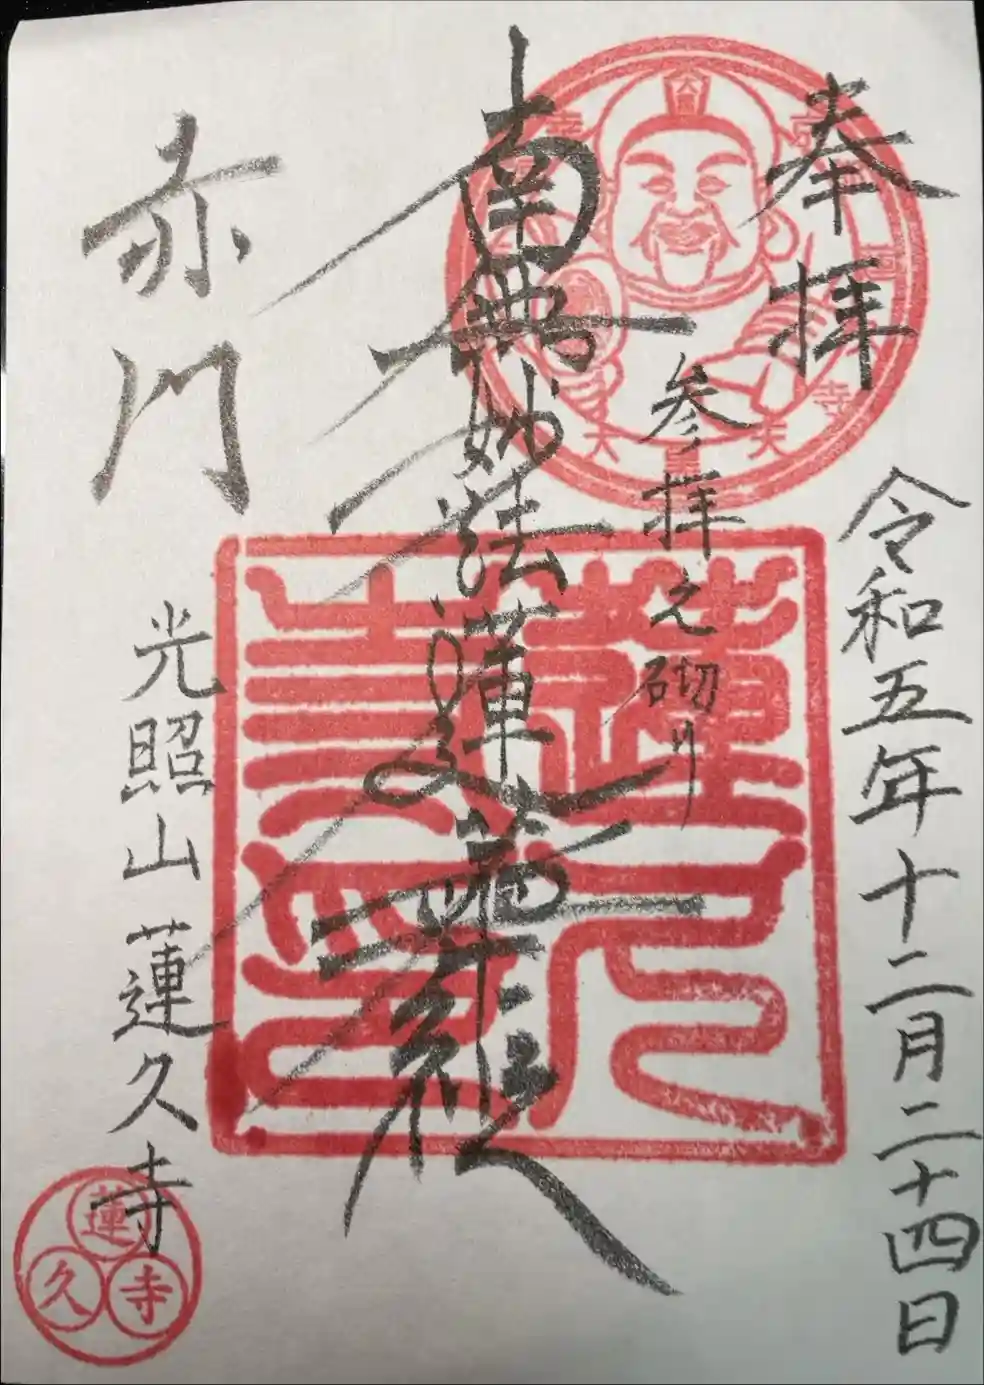 奉拝
令和五年十二月二十四日
参拝之砌り
南無妙法蓮華経
赤门
光照山 蓮久寺
蓮久寺印
蓮
久
寺